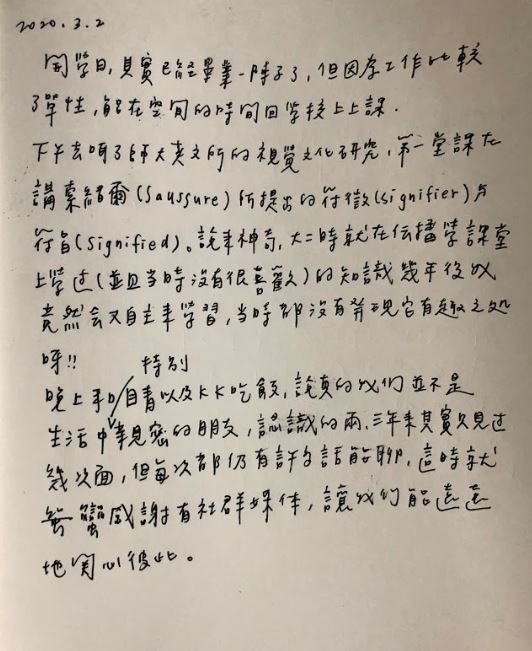 2020.3.2
開學日,其實已經畢業一陣子了,但因為工作比較
彈性,能在空閒的時間回學校上上課.
下午去師大英文所的視覺文化研究,第一堂課在
講索緒爾(Saussure)所提出的符徵(signifier)與
符旨(Signified)。說來神奇,大二時就在傳播學課堂
上學過(並且当時沒有很喜歡)的知識幾年後以
竟然会又自主來學習,当時都沒有發現它有趣之处
呀!!
特別
晚上和 青以及KK吃飯,說真的我们並不是
生活中親密的朋友,認識的兩、三年來其實只見过
幾次面,但每次都仍有許多話能聊,這時就
蠻感謝有社群媒体,讓我们能遠遠
地関心彼此。